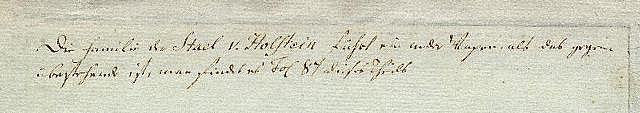 Die Familie der Stael v. Holstein führt ein ander Wapen als das gegen¬
überstehende ist, man findet es Fol 87 dieses Theils